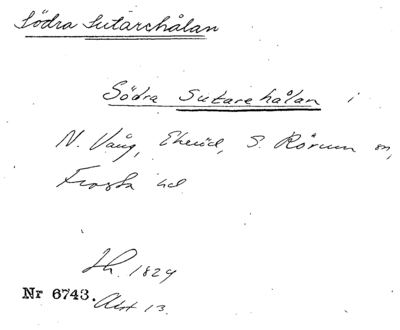 Södra Sutarehålan
Södra Sutarehålan i
N. Vång, Ekeröd, S. Rörum sn,
Frosta hd
Lh. 1829
Nr 6743. Akt 13.